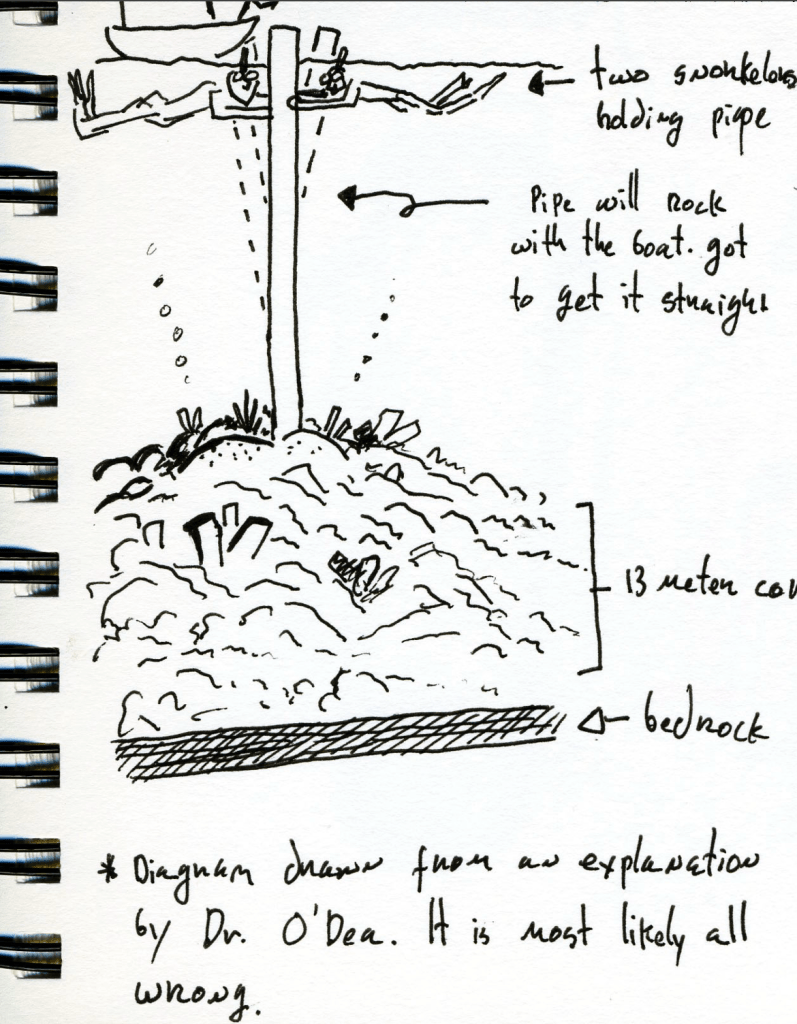 two snorkelors
holding pipe
Pipe will rock
with the boat. got
to get it straight
13 meter
bedrock
* Diagram drawn from an explanation
by Dr. O'Dea. It is most likely all
wrong.